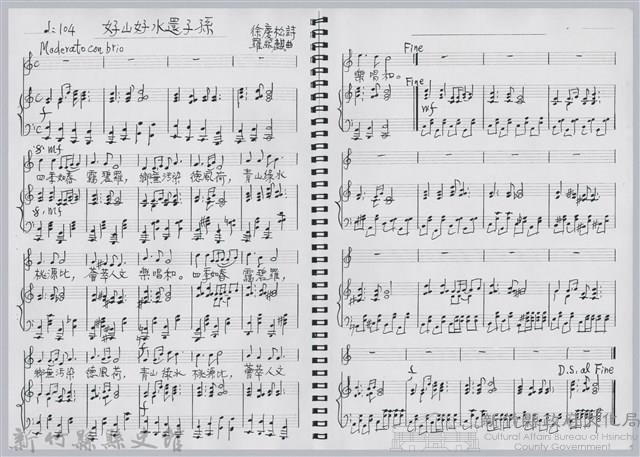 ♩=104
好山好水還子孫
徐慶松詩
羅慈麒曲
Moderato con brio
f
𝄋 mf
四季如春 霧碧羅, 鄉無汚染 德風荷, 青山綠水
𝄋 mf
桃源比, 薈萃人文 樂唱和。四季如春 霧碧羅,
鄉無汚染 德風荷, 青山綠水 桃源比, 薈萃人文
f
新竹縣縣史館
Fine
樂唱和。
Fine
mf
D.S. al Fine
新竹縣政府文化局
Cultural Affairs Bureau of Hsinchu
County Government